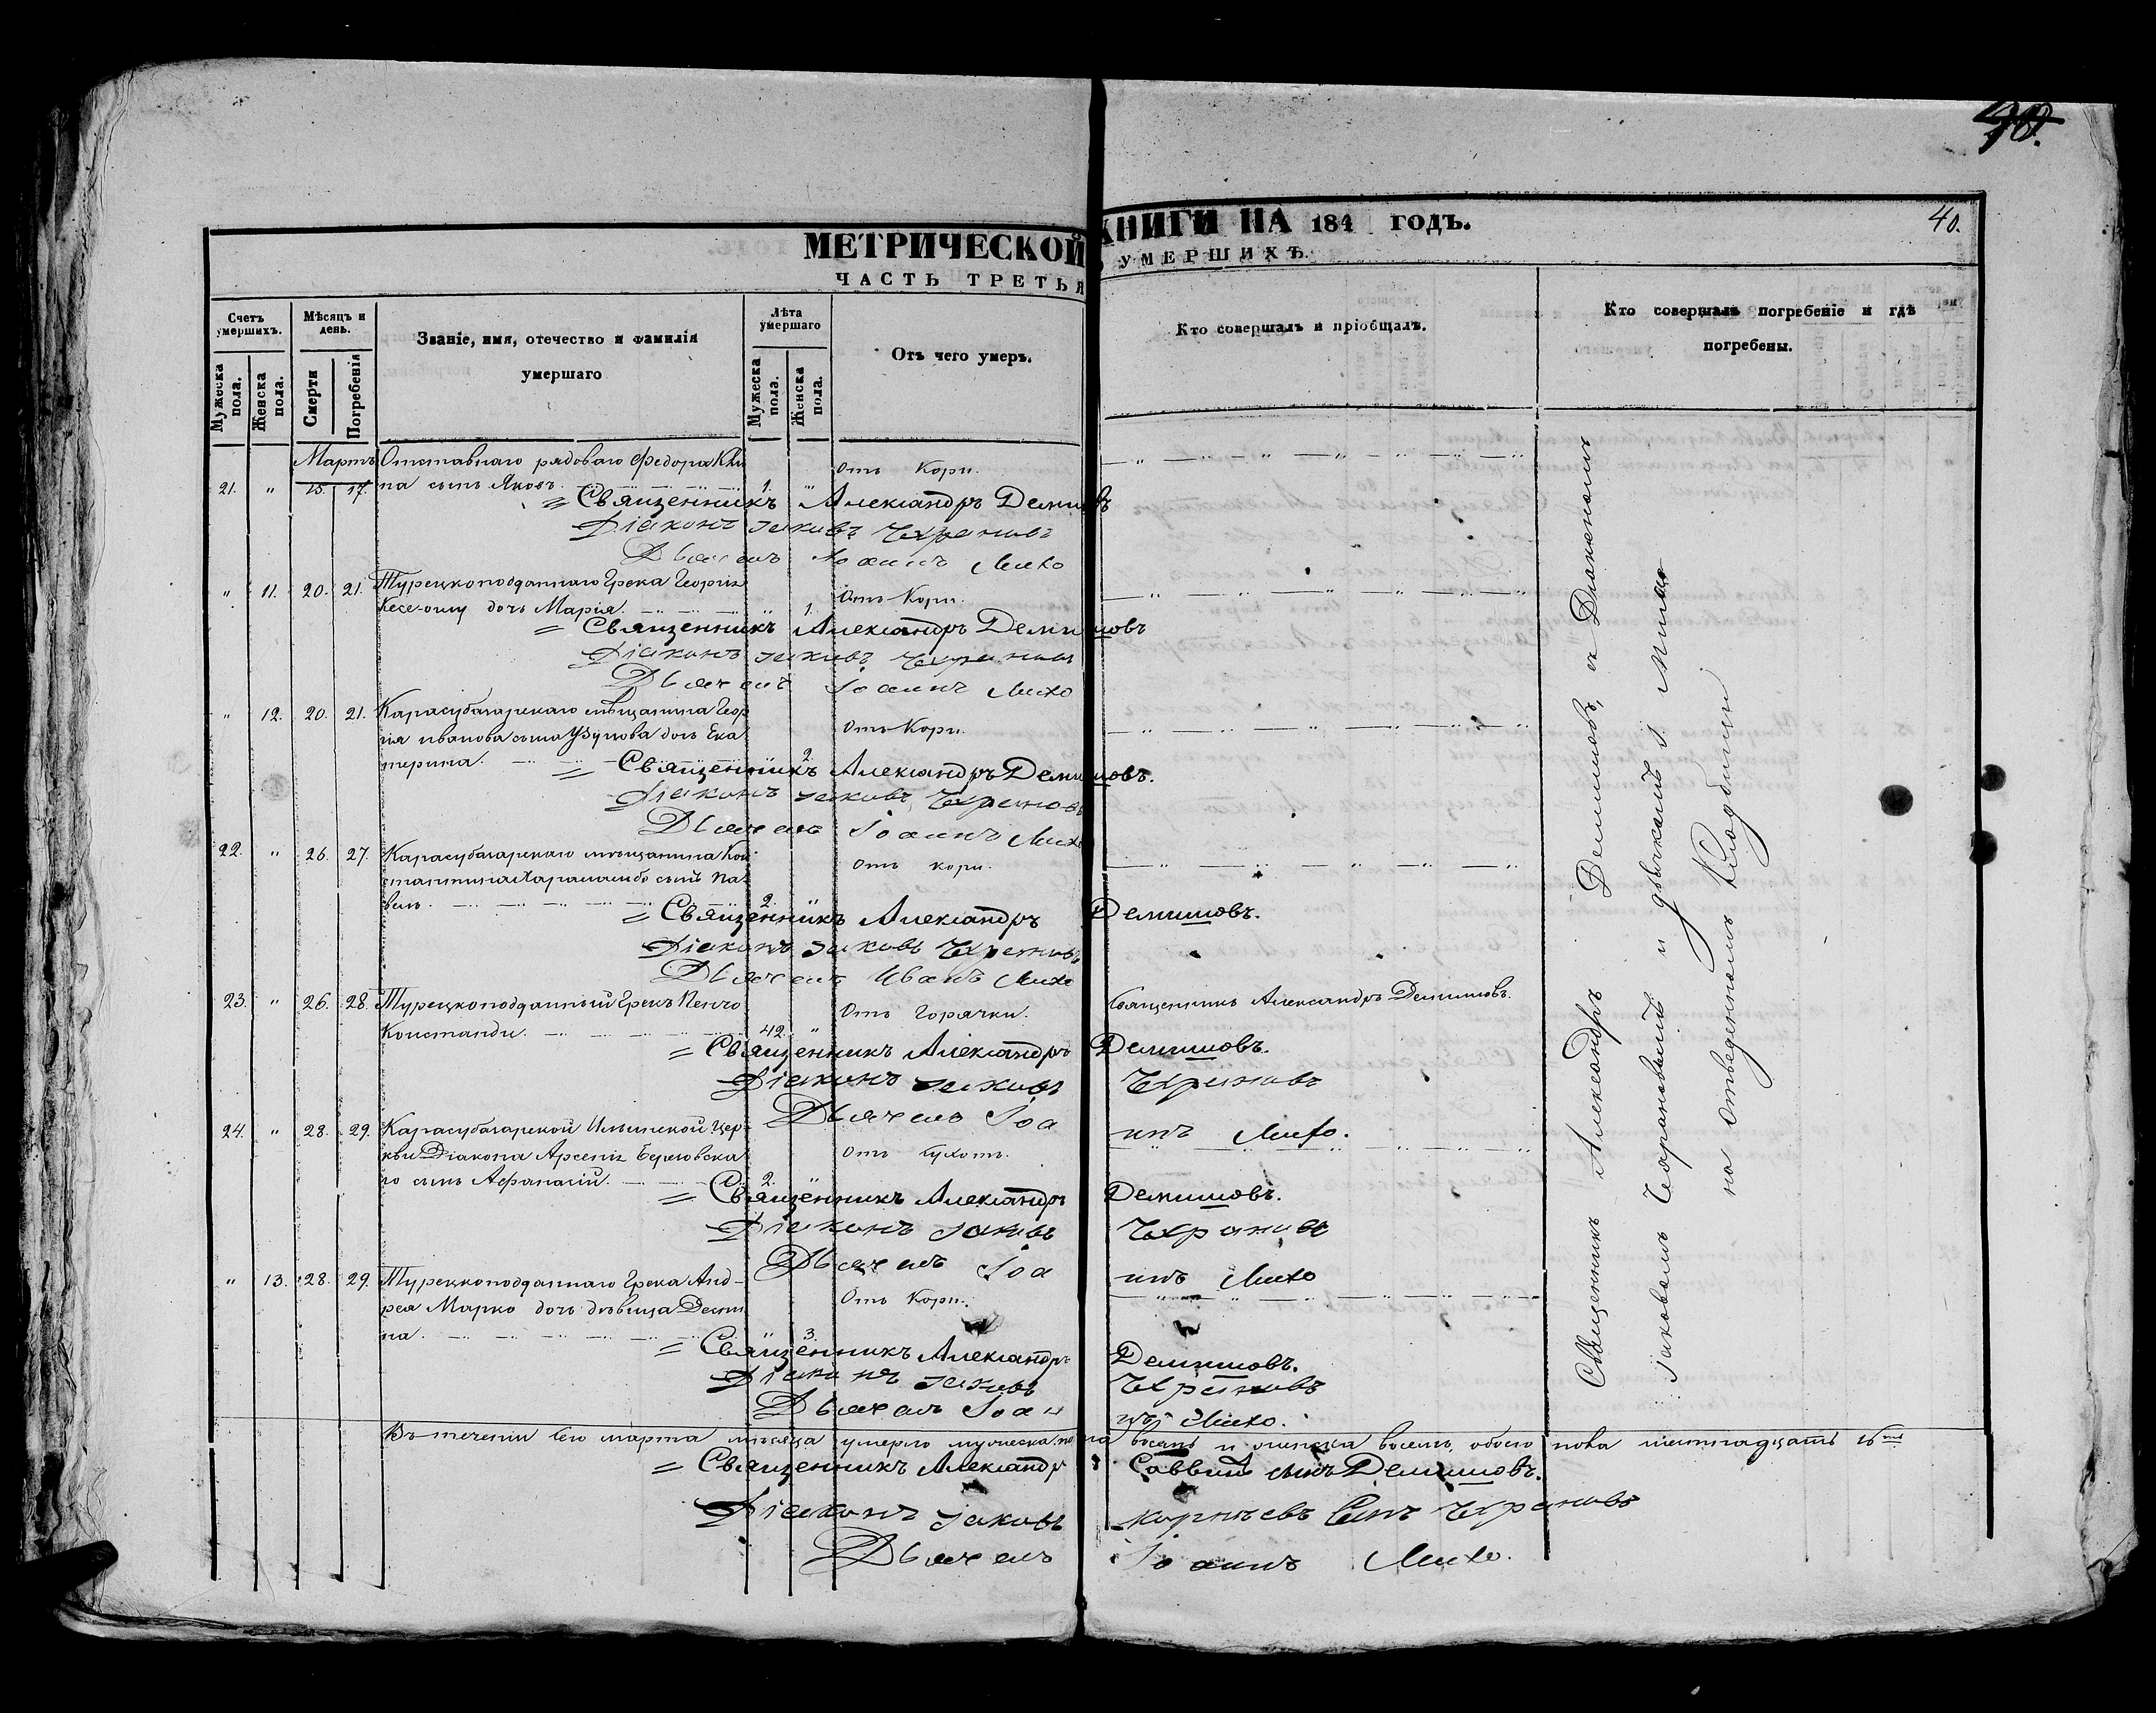 40.
МЕТРИЧЕСКОЙ КНИГИ НА 184 ГОДЪ.
40.
ЧАСТЬ ТРЕТЬЯ УМЕРШИХЪ.
Счетъ умершихъ.
Мужеска пола.
Женска пола.
Мѣсяцъ и день.
Смерти
Погребенія
Званіе, имя, отечество и фамилія
умершаго
Лѣта умершаго
Мужеска пола.
Женска пола.
Отъ чего умеръ.
Кто совершалъ и пріобщалъ.
Кто совершалъ погребеніе и гдѣ
погребены.
Мартъ Отставнаго рядоваго Федора
21. " 15. 17. па сынъ Яковъ. 1. " Отъ Кори.
Священникъ Александръ Демишовъ
Діаконъ Іаковъ Чехрановъ
Дьячекъ Іоаннъ Михо
" 11. 20. 21. Турецкоподданнаго Грека Георгія
дочь Марія. " 1. Отъ Кори.
Священникъ Александръ Демишовъ
Діаконъ Іаковъ Чехрановъ
Дьячекъ Іоаннъ Михо
" 12. 20. 21. Карасубазарскаго мѣщанина Геор
гія Иванова сына Узунова дочь Ека
терина. 2. Отъ Кори.
Священникъ Александръ Демишовъ.
Діаконъ Іаковъ Чехрановъ
Дьячекъ Іоаннъ Михо
22. " 26. 27. Карасубазарскаго мѣщанина Кон
стантина Хараламбо сынъ Па
велъ. 2. " Отъ кори.
Священникъ Александръ Демишовъ.
Діаконъ Іаковъ Чехрановъ
Дьячекъ Иванъ Михо
23. " 26. 28. Турецкоподданный Грекъ Пенчо
Константи. 42. " Отъ Горячки. Священникъ Александръ Демишовъ.
Священникъ Александръ Демишовъ.
Діаконъ Іаковъ Чехрановъ
Дьячекъ Іоаннъ Михо.
24. " 28. 29. Карасубазарской Ильинской Цер
кви Діакона Арсенія Береговска
го сынъ Афанасій. 2. " Отъ
Священникъ Александръ Демишовъ.
Діаконъ Іаковъ Чехрановъ
Дьячекъ Іоаннъ Михо
" 13. 28. 29. Турецкоподданнаго Грека Анд
рея Марко дочь дѣвица Деспи
на. " 3. Отъ Кори.
Священникъ Александръ Демишовъ.
Діаконъ Іаковъ Чехрановъ
Дьячекъ Іоаннъ Михо.
Священникъ Александръ Демишовъ, съ Діакономъ
Іаковомъ Чехрановымъ и дьячкомъ І. Михо
на отведенномъ Кладбищѣ
Въ теченіи сего марта мѣсяца умерло мужеска пола восемь и женска восемь, обоего пола шестнадцать 16
Священникъ Александръ Саввинъ сынъ Демишовъ.
Діаконъ Іаковъ Корнѣевъ Сынъ Чехрановъ
Дьячекъ Іоаннъ Михо.